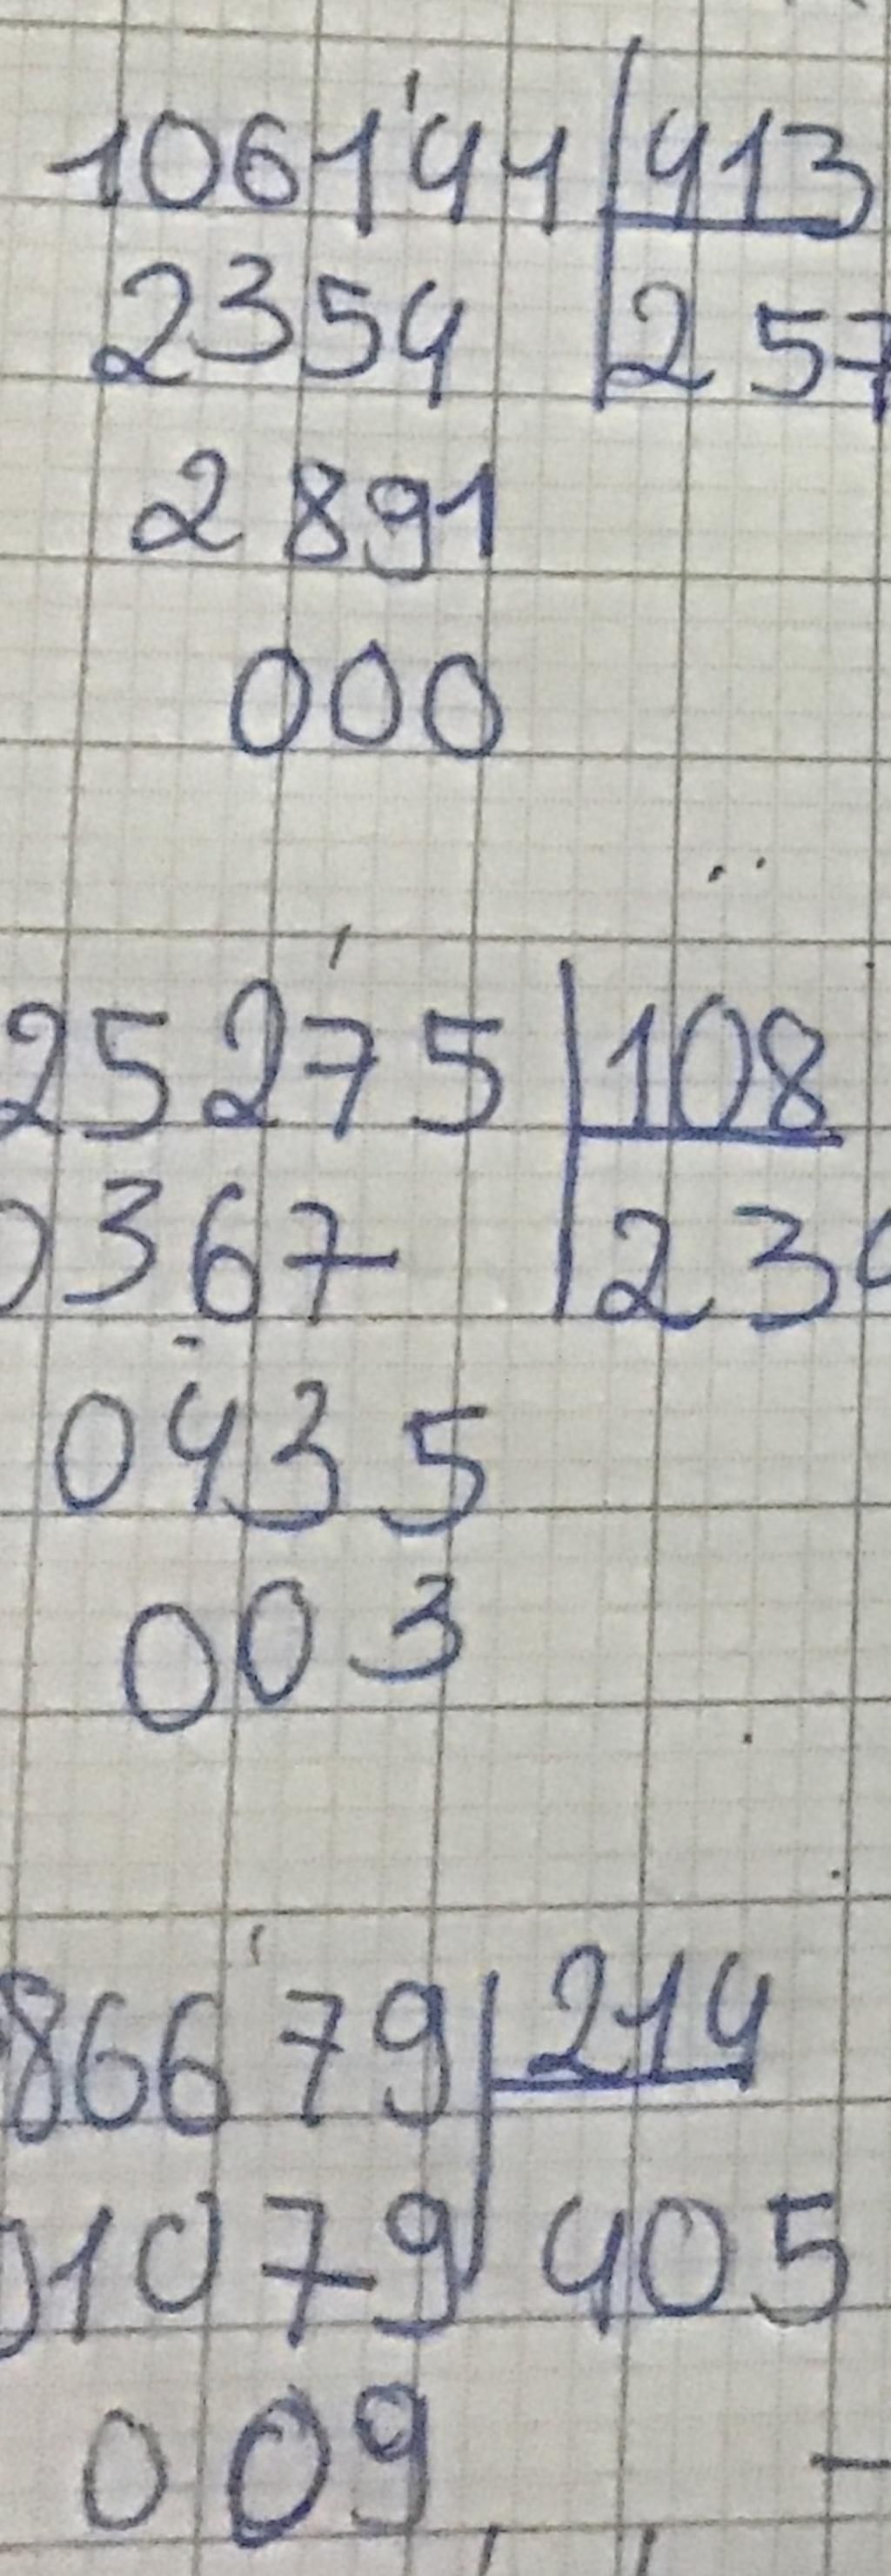 1061'41 | 413
2354 | 257
2891
000
252'75 | 108
0367 | 23
0435
003
866'79 | 214
01079 | 405
009